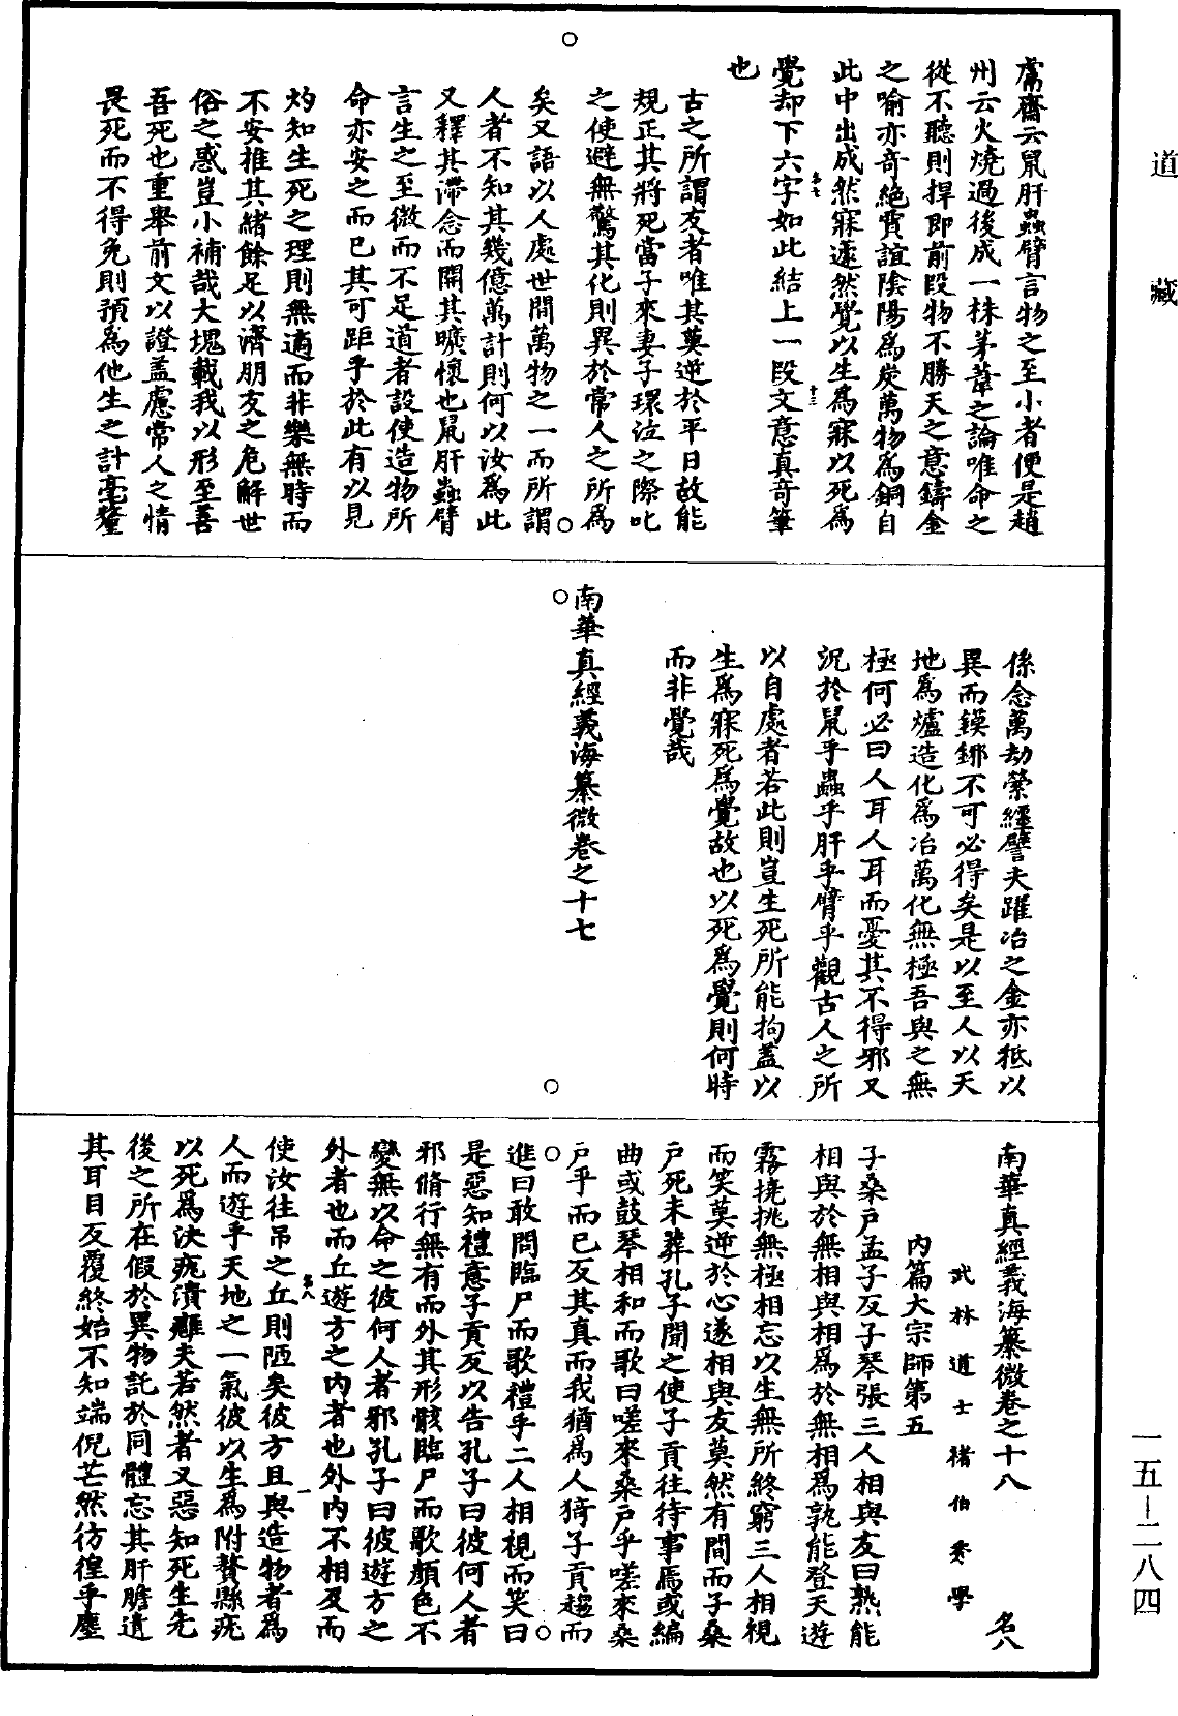 道藏
鬳齋云鼠肝蟲臂言物之至小者便是趙
州云火燒過後成一株茅葦之論唯命之
從不聽則捍即前段物不勝天之意鑄金
之喻亦奇絕賈誼陰陽為炭萬物為銅自
此中出成然寐蘧然覺以生為寐以死為
覺却下六字如此結上一段文意真奇筆
也
古之所謂友者唯其莫逆於平日故能
規正其將死當子來妻子環泣之際叱
之使避無驚其化則異於常人之所為
矣又語以人處世間萬物之一而所謂
人者不知其幾億萬計則何以汝為此
又釋其滯念而開其曠懷也鼠肝蟲臂
言生之至微而不足道者設使造物所
命亦安之而已其可距乎於此有以見
灼知生死之理則無適而非樂無時而
不安推其緒餘足以濟朋友之危解世
俗之惑豈小補哉大塊載我以形至善
吾死也重舉前文以證蓋慮常人之情
畏死而不得免則預為他生之計毫釐
係念萬劫縈纏譬夫躍冶之金亦秪以
異而鏌鋣不可必得矣是以至人以天
地為爐造化為冶萬化無極吾與之無
極何必曰人耳人耳而憂其不得邪又
況於鼠乎蟲乎肝乎臂乎觀古人之所
以自處者若此則豈生死所能拘蓋以
生為寐死為覺故也以死為覺則何時
而非覺哉
南華真經義海纂微卷之十七
南華真經義海纂微卷之十八 名八
武林道士褚伯秀學
內篇大宗師第五
子桑戶孟子反子琴張三人相與友曰孰能
相與於無相與相為於無相為孰能登天遊
霧撓挑無極相忘以生無所終窮三人相視
而笑莫逆於心遂相與友莫然有間而子桑
戶死未葬孔子聞之使子貢往待事焉或編
曲或鼓琴相和而歌曰嗟來桑戶乎嗟來桑
戶乎而已反其真而我猶為人猗子貢趨而
進曰敢問臨尸而歌禮乎二人相視而笑曰
是惡知禮意子貢反以告孔子曰彼何人者
邪脩行無有而外其形骸臨尸而歌顏色不
變無以命之彼何人者邪孔子曰彼遊方之
外者也而丘遊方之內者也外內不相及而
使汝往吊之丘則陋矣彼方且與造物者為
人而遊乎天地之一氣彼以生為附贅縣疣
以死為決疣潰癰夫若然者又惡知死生先
後之所在假於異物託於同體忘其肝膽遺
其耳目反覆終始不知端倪芒然彷徨乎塵
一五-二八四